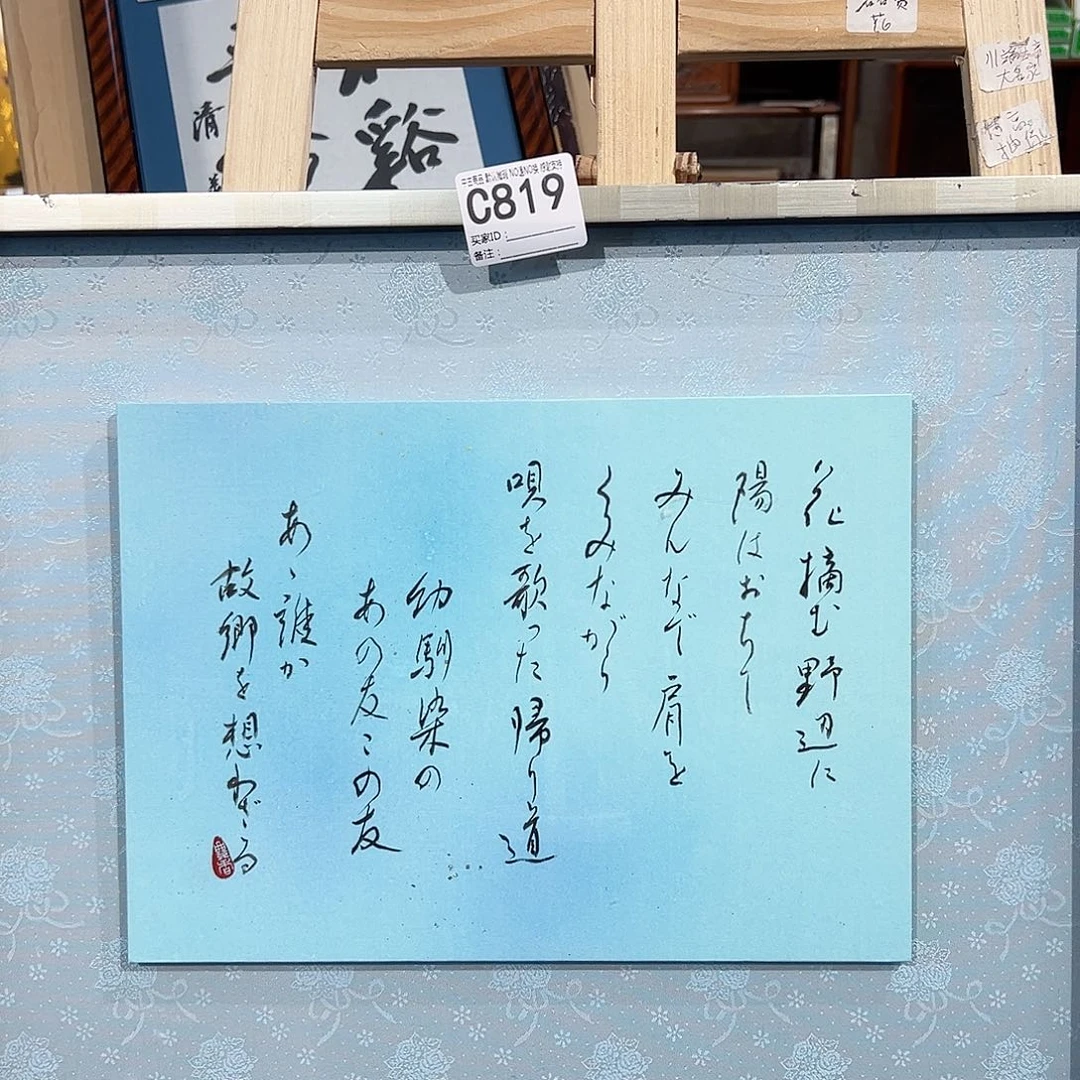 花摘む野辺に
陽はおちて
みんなで肩を
くみながら
唄を歌った帰り道
幼馴染の
あの友この友
あゝ誰か
故郷を想わざる
C819
买家ID：
备注：
清
谿
大名家